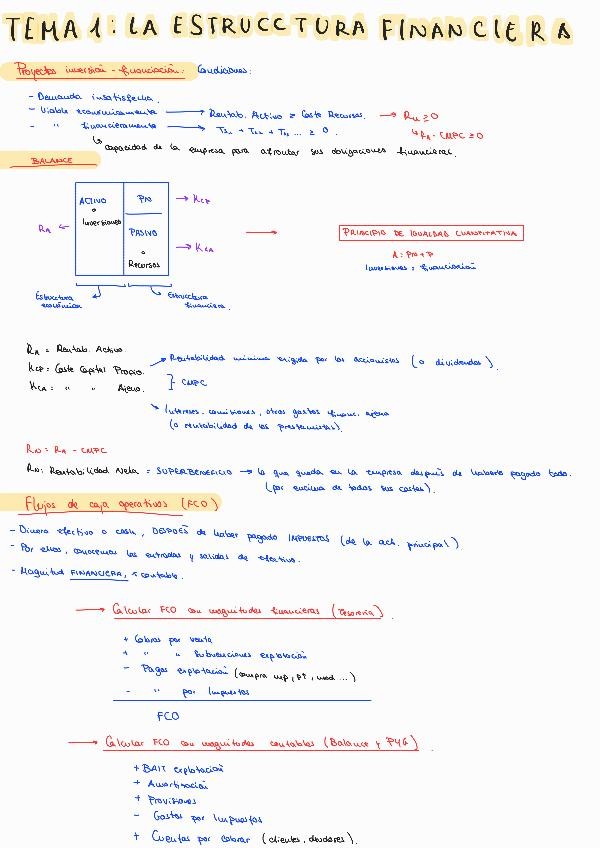 TEMA 1: LA ESTRUCCTURA FINANCIERA
Proyectos inversión - financiación: Condiciones:
- Demanda insatisfecha.
- Viable económicamente → Rentab. Activo ≥ Coste Recursos. → RN ≥ 0
- " financieramente → Ts1 + Ts2 + Ts3 ... ≥ 0. ↳ RA - CMPC ≥ 0
↳ capacidad de la empresa para afrontar sus obligaciones financieras.
BALANCE
ACTIVO PN → KCP
Inversiones
RA ← PASIVO → KCA
Recursos
Estructura económica
Estructura financiera.
→ PRINCIPIO DE IGUALDAD CUANTITATIVA
A = PN + P
Inversiones = financiación
RA = Rentab. Activo.
KCP = Coste Capital Propio. → Rentabilidad mínima exigida por los accionistas (o dividendos).
KCA = " " Ajeno. } CMPC
↘ Intereses, comisiones, otros gastos financ. ajena
(o rentabilidad de los prestamistas).
RN = RA - CMPC
RN: Rentabilidad Neta = SUPERBENEFICIO → lo que queda en la empresa después de haberlo pagado todo.
(por encima de todos sus costes).
Flujos de caja operativos (FCO)
- Dinero efectivo o cash, DESPUÉS de haber pagado IMPUESTOS (de la act. principal).
- Por ellos, conocemos las entradas y salidas de efectivo.
- Magnitud FINANCIERA, ≠ contable.
→ Calcular FCO con magnitudes financieras (Tesorería)
+ Cobros por venta
+ " " Subvenciones explotación
- Pagos explotación (compra mp, pt, mod...)
- " por Impuestos
FCO
→ Calcular FCO con magnitudes contables (Balance y PYG)
+ BAIT explotación
+ Amortización
+ Provisiones
- Gastos por Impuestos
+ Cuentas por cobrar (clientes, deudores).